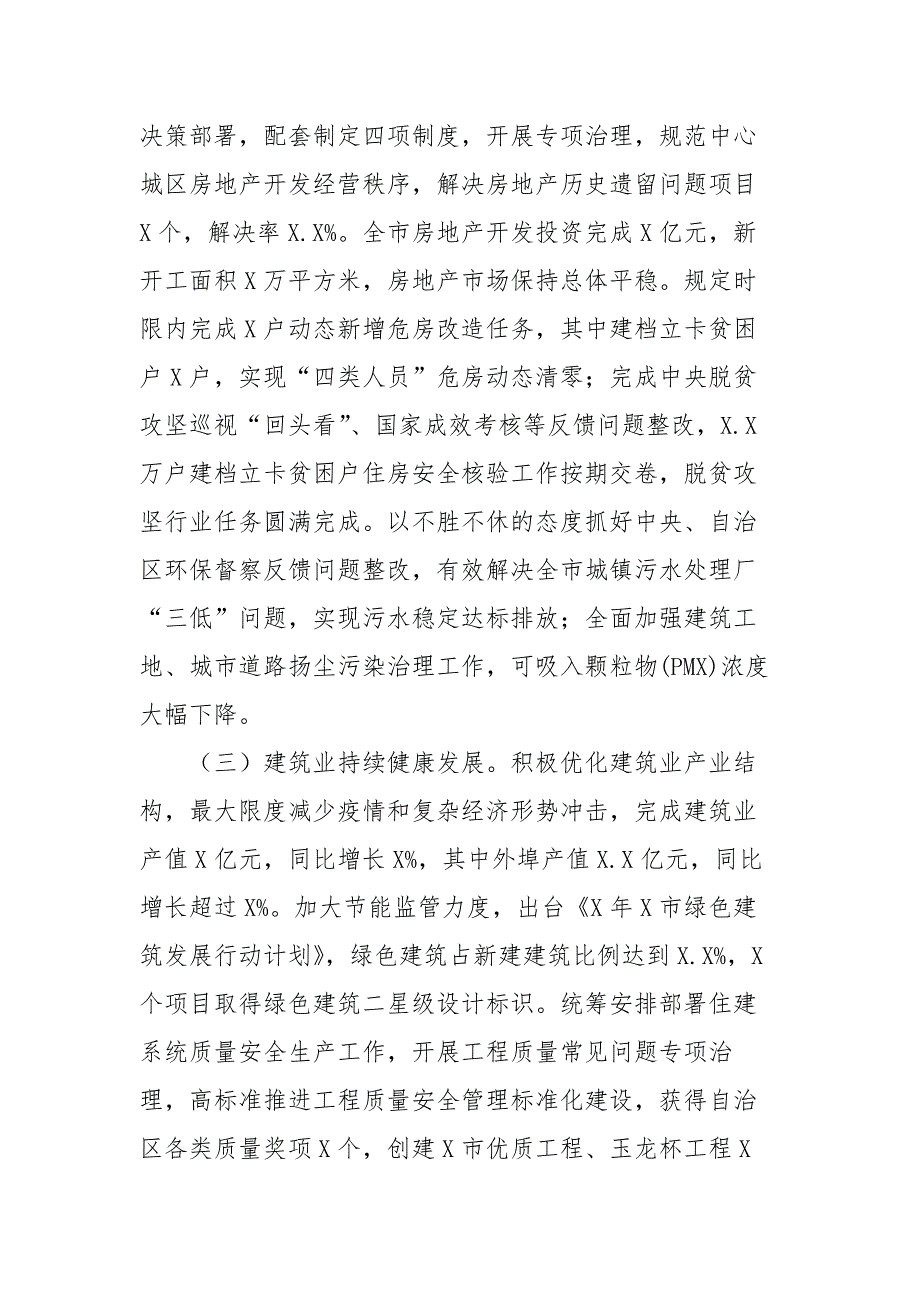 决策部署，配套制定四项制度，开展专项治理，规范中心
城区房地产开发经营秩序，解决房地产历史遗留问题项目
X 个，解决率 X.X%。全市房地产开发投资完成 X 亿元，新
开工面积 X 万平方米，房地产市场保持总体平稳。规定时
限内完成 X 户动态新增危房改造任务，其中建档立卡贫困
户 X 户，实现“四类人员”危房动态清零；完成中央脱贫
攻坚巡视“回头看”、国家成效考核等反馈问题整改，X.X
万户建档立卡贫困户住房安全核验工作按期交卷，脱贫攻
坚行业任务圆满完成。以不胜不休的态度抓好中央、自治
区环保督察反馈问题整改，有效解决全市城镇污水处理厂
“三低”问题，实现污水稳定达标排放；全面加强建筑工
地、城市道路扬尘污染治理工作，可吸入颗粒物(PMX)浓度
大幅下降。
（三）建筑业持续健康发展。积极优化建筑业产业结
构，最大限度减少疫情和复杂经济形势冲击，完成建筑业
产值 X 亿元，同比增长 X%，其中外埠产值 X.X 亿元，同比
增长超过 X%。加大节能监管力度，出台《X 年 X 市绿色建
筑发展行动计划》，绿色建筑占新建建筑比例达到 X.X%，X
个项目取得绿色建筑二星级设计标识。统筹安排部署住建
系统质量安全生产工作，开展工程质量常见问题专项治
理，高标准推进工程质量安全管理标准化建设，获得自治
区各类质量奖项 X 个，创建 X 市优质工程、玉龙杯工程 X